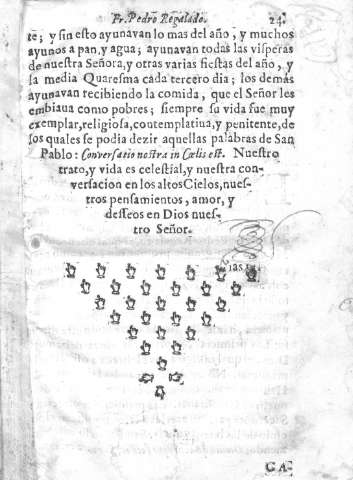 Fr. Pedro Regalado. 24.
te; y sin esto ayunavan lo mas del año, y muchos
ayunos a pan, y agua; ayunavan todas las visperas
de nuestra Señora, y otras varias fiestas del año, y
la media Quaresma cada tercero dia; los demás
ayunavan recibiendo la comida, que el Señor les
embiaua como pobres; siempre su vida fue muy
exemplar, religiosa, contemplatiua, y penitente, de
los quales se podia dezir aquellas palabras de San
Pablo: Conversatio nostra in Cœlis est. Nuestro
trato, y vida es celestial, y nuestra con-
versacion en los altos Cielos, nues-
tros pensamientos, amor, y
desseos en Dios nues-
tro Señor.
CA